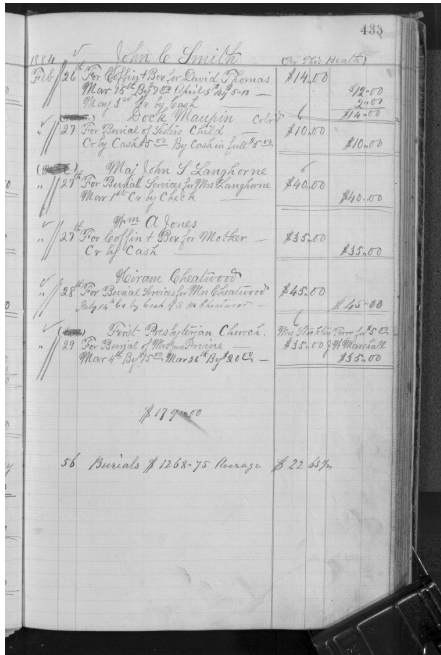 433
1884 John C Smith
Feb 26th For Coffin & Box for David Thomas $14.00
Mar 15th By 7.00 April 5th By 5.00 — $12.00
May 3rd Cr. by Cash 2.00
$14.00
Dock Maupin Cold
27 For Burial of Child — $10.00
Cr by Cash $5.00 By Cash in full $5.00 $10.00
Maj John S Langhorne
27th For Burial Services for Mrs Langhorne $40.00
Mar 1st Cr by Check — $40.00
Wm A Jones
27th For Coffin & Box for Mother — $35.00
Cr by Cash — $35.00
Hiram Cheatwood
28th For Burial Services for Mrs Cheatwood $45.00
$45.00
First Presbyterian Church.
29 For Burial of Irvine — $35.00 Marshall
Mar 4th By $15.00 Mar 26th By $20.00 — $35.00
$179.00
56 Burials $1268-75 Average $22